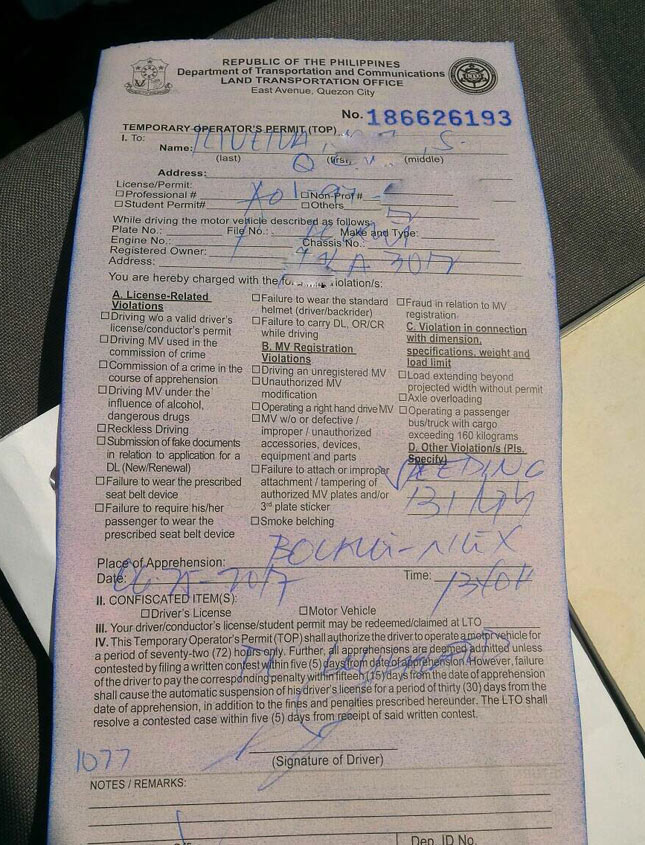 REPUBLIC OF THE PHILIPPINES
Department of Transportation and Communications
LAND TRANSPORTATION OFFICE
East Avenue, Quezon City
No. 186626193
TEMPORARY OPERATOR'S PERMIT (TOP)
I. To:
Name:
(last) (first) (middle)
Address:
License/Permit:
☐Professional # ☐Non-Prof #
☐Student Permit# ☐Others
While driving the motor vehicle described as follows:
Plate No.: File No.: Make and Type:
Engine No.: Chassis No.:
Registered Owner:
Address:
You are hereby charged with the violation/s:
A. License-Related
Violations
☐Driving w/o a valid driver's
license/conductor's permit
☐Driving MV used in the
commission of crime
☐Commission of a crime in the
course of apprehension
☐Driving MV under the
influence of alcohol,
dangerous drugs
☐Reckless Driving
☐Submission of fake documents
in relation to application for a
DL (New/Renewal)
☐Failure to wear the prescribed
seat belt device
☐Failure to require his/her
passenger to wear the
prescribed seat belt device
☐Failure to wear the standard
helmet (driver/backrider)
☐Failure to carry DL, OR/CR
while driving
B. MV Registration
Violations
☐Driving an unregistered MV
☐Unauthorized MV
modification
☐Operating a right hand drive MV
☐MV w/o or defective /
improper / unauthorized
accessories, devices,
equipment and parts
☐Failure to attach or improper
attachment / tampering of
authorized MV plates and/or
3rd plate sticker
☐Smoke belching
☐Fraud in relation to MV
registration
C. Violation in connection
with dimension,
specifications, weight and
load limit
☐Load extending beyond
projected width without permit
☐Axle overloading
☐Operating a passenger
bus/truck with cargo
exceeding 160 kilograms
D. Other Violation/s (Pls.
Specify)
SPEEDING
Place of Apprehension:
Date: Time:
II. CONFISCATED ITEM(S):
☐Driver's License ☐Motor Vehicle
III. Your driver/conductor's license/student permit may be redeemed/claimed at LTO
IV. This Temporary Operator's Permit (TOP) shall authorize the driver to operate a motor vehicle for
a period of seventy-two (72) hours only. Further, all apprehensions are deemed admitted unless
contested by filing a written contest within five (5) days from date of apprehension. However, failure
of the driver to pay the corresponding penalty within fifteen (15) days from the date of apprehension
shall cause the automatic suspension of his driver's license for a period of thirty (30) days from the
date of apprehension, in addition to the fines and penalties prescribed hereunder. The LTO shall
resolve a contested case within five (5) days from receipt of said written contest.
(Signature of Driver)
1077
NOTES / REMARKS:
Dep. ID No.